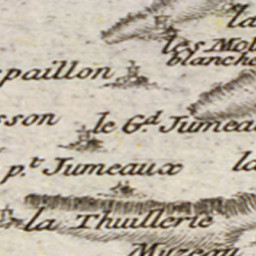 la
les Mol
blanche
paillon
sson
le G.d Jumea
p.t Jumeaux
la
la Thuillerie
Muzeau